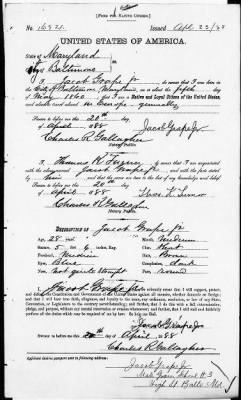 [FORM FOR NATIVE CITIZEN.]
No. 16821. Issued Apl 23/88
UNITED STATES OF AMERICA.
State of Maryland
City Baltimore
I, Jacob Grape Jr do swear that I was born in
the City of Baltimore, on or about the fifth
day of May 1860; that I am a Native and Loyal Citizen of the United States,
and about to travel abroad in Europe generally
Sworn to before me this 20th
day of April 1888 Jacob Grape Jr
Charles R. Gallagher
Notary Public.
I, Thomas K. do swear that I am acquainted
with the above-named Jacob Grape Jr and with the facts stated
by him and that the same are true to the best of my knowledge and belief.
Sworn to before me this 20th
day of April 1888
Charles R. Gallagher
Notary Public.
DESCRIPTION OF Jacob Grape Jr
Age, 28 years. Mouth, medium
Stature, 5 ft 6 inches, Eng. Chin,
Forehead, Medium Hair, Brown
Eyes, Blue Complexion,
Nose, not quite straight Face, round
I, Jacob Grape Jr do solemnly swear that I will support, protect,
and defend the Constitution and Government of the United States against all enemies, whether domestic or foreign;
and that I will bear true faith, allegiance, and loyalty to the same, any ordinance, resolution, or law of any State,
Convention, or Legislature to the contrary notwithstanding; and further, that I do this with a full determination,
pledge, and purpose, without any mental reservation or evasion whatsoever; and further, that I will well and faithfully
perform all the duties which may be required of me by law. So help me God.
Jacob Grape Jr
Sworn to before me this 20th day of April 1888
Charles R. Gallagher
Notary Public.
Applicant desires passport to be sent to following address:
Jacob Grape Jr
#3
High St. Balto. Md.